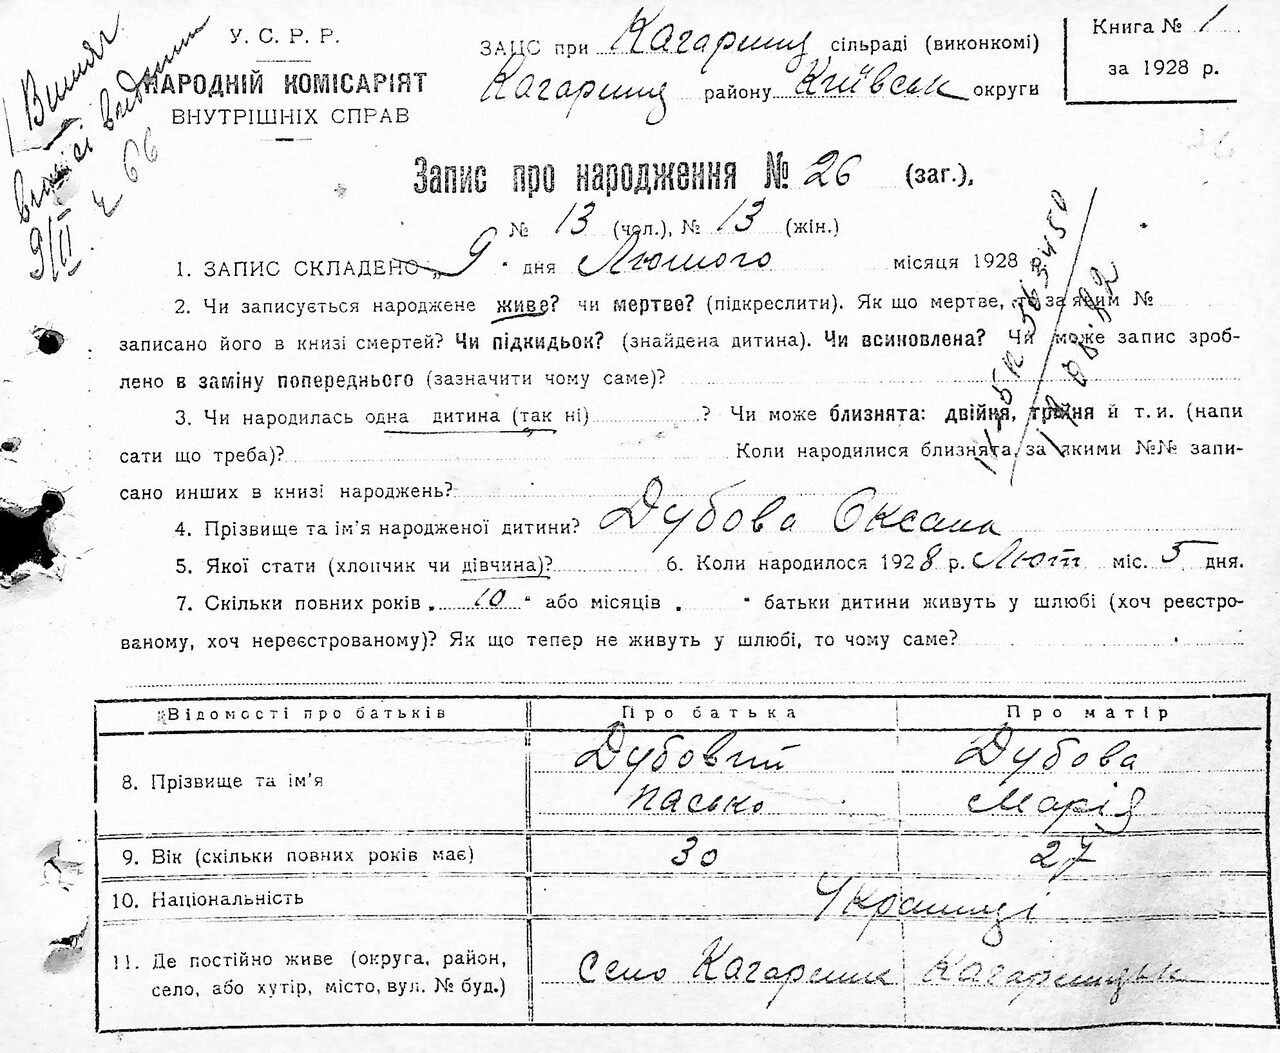 У. С. Р. Р.
НАРОДНІЙ КОМІСАРІЯТ
ВНУТРІШНІХ СПРАВ
ЗАЦС при Кагарлиц сільраді (виконкомі)
Кагарлиц району Київськ округи
Книга № 1
за 1928 р.
Витяг
видано
9/II 66
Запис про народження № 26 (заг.),
№ 13 (чол.), № 13 (жін.)
1. ЗАПИС СКЛАДЕНО „ 9 " дня Лютого місяця 1928 р.
2. Чи записується народжене живе? чи мертве? (підкреслити). Як що мертве, то за яким №
записано його в книзі смертей? Чи підкидьок? (знайдена дитина). Чи всиновлена? Чи може запис зроб-
лено в заміну попереднього (зазначити чому саме)?
3. Чи народилась одна дитина (так ні) ? Чи може близнята: двійня, трійня й т. и. (напи
сати що треба)? Коли народилися близнята, за якими №№ запи-
сано инших в книзі народжень?
4. Прізвище та ім'я народженої дитини? Дубова Оксана
5. Якої стати (хлопчик чи дівчина)? 6. Коли народилося 1928 р. Лют міс. 5 дня.
7. Скільки повних років „ 10 " або місяців „ " батьки дитини живуть у шлюбі (хоч реєстро-
ваному, хоч нереєстрованому)? Як що тепер не живуть у шлюбі, то чому саме?
Відомості про батьків Про батька Про матір
8. Прізвище та ім'я Дубовий Пасько Дубова Марія
9. Вік (скільки повних років має) 30 27
10. Національність Українці
11. Де постійно живе (округа, район, село, або хутір, місто, вул. № буд.) Село Кагарлик Кагарлицьк